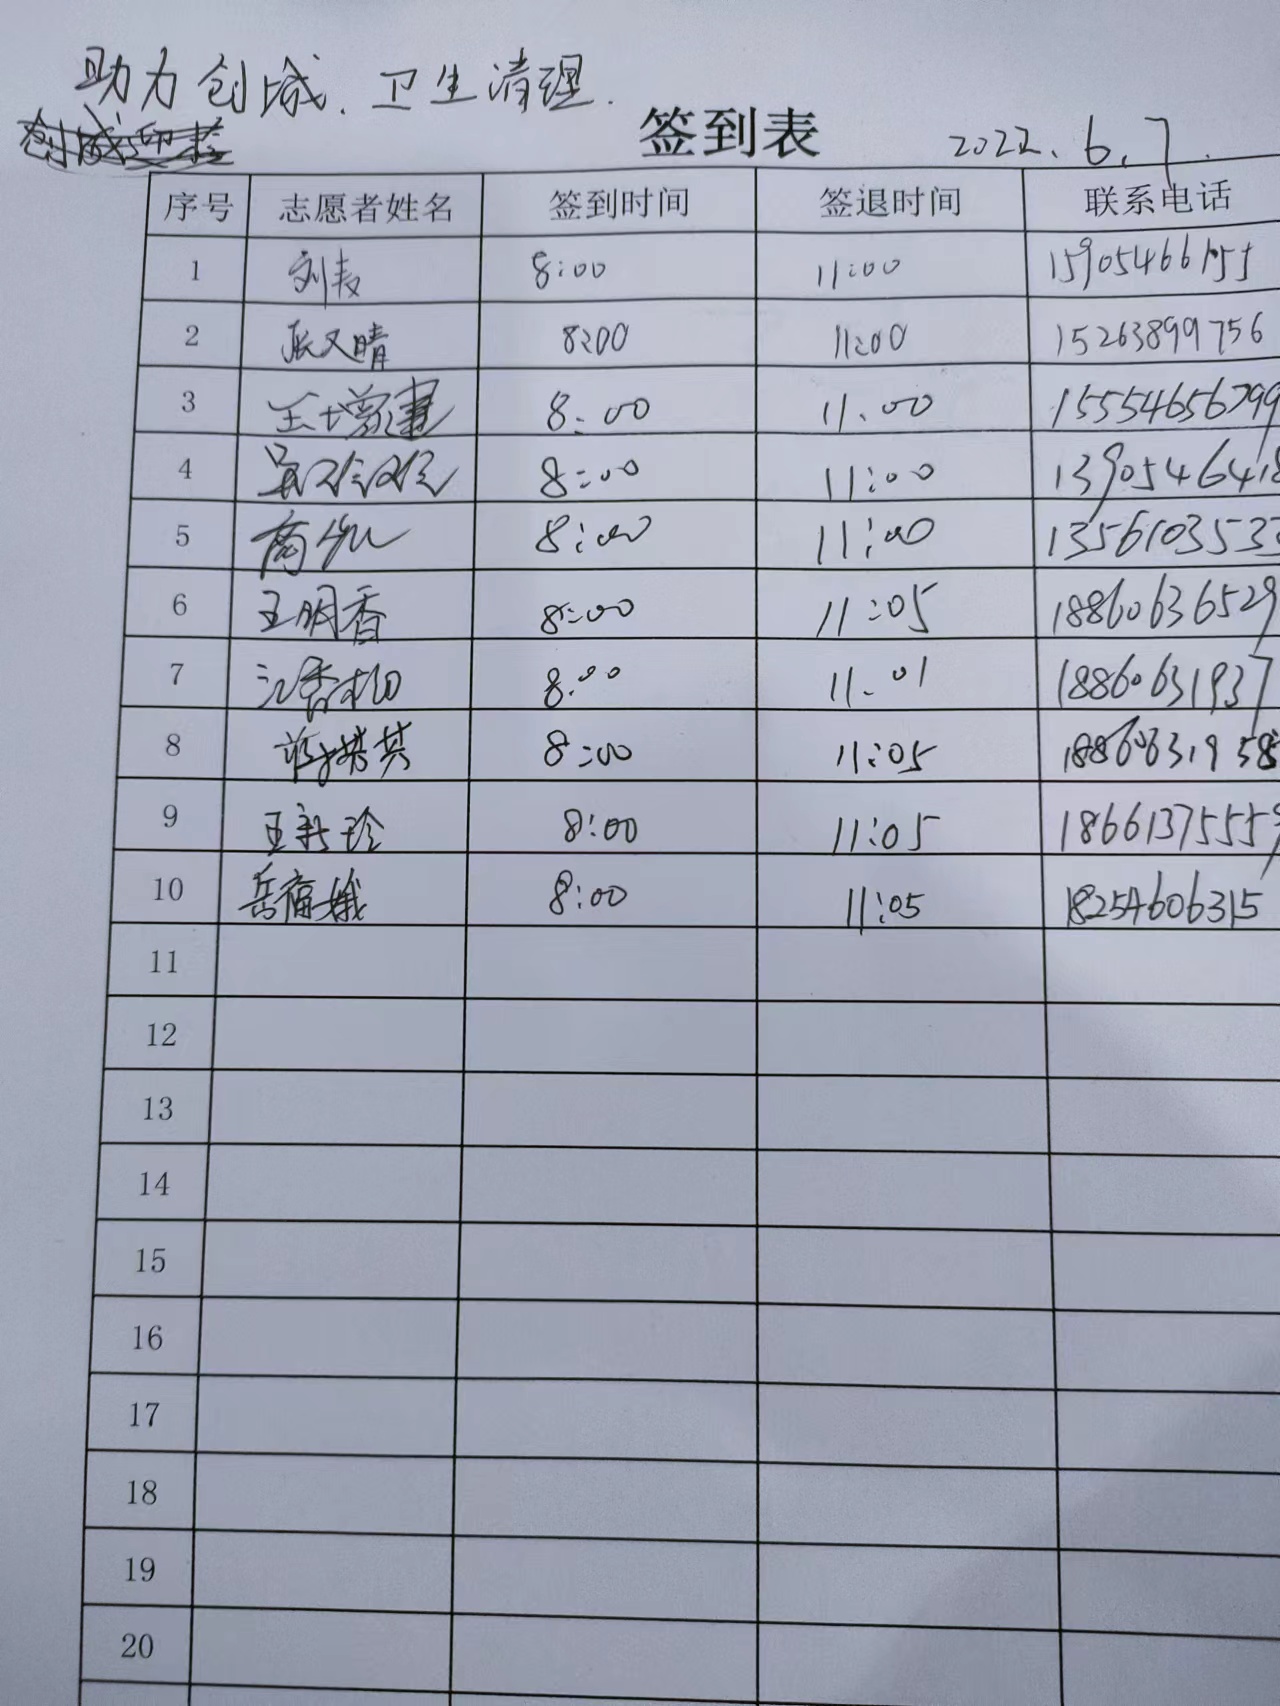 助力创城、卫生清理.
签到表 2022.6.7.
序号 志愿者姓名 签到时间 签退时间 联系电话
1 8:00 11:00
2 张又晴 8:00 11:00 15263899756
3 王增建 8:00 11:00 15554656799
4 8:00 11:00 1390546418
5 8:00 11:00 1356103533
6 王明香 8:00 11:05 18860636529
7 8:00 11:01 18860631937
8 8:00 11:05
9 王新珍 8:00 11:05 1866137555
10 岳福娥 8:00 11:05 18254606315
11
12
13
14
15
16
17
18
19
20